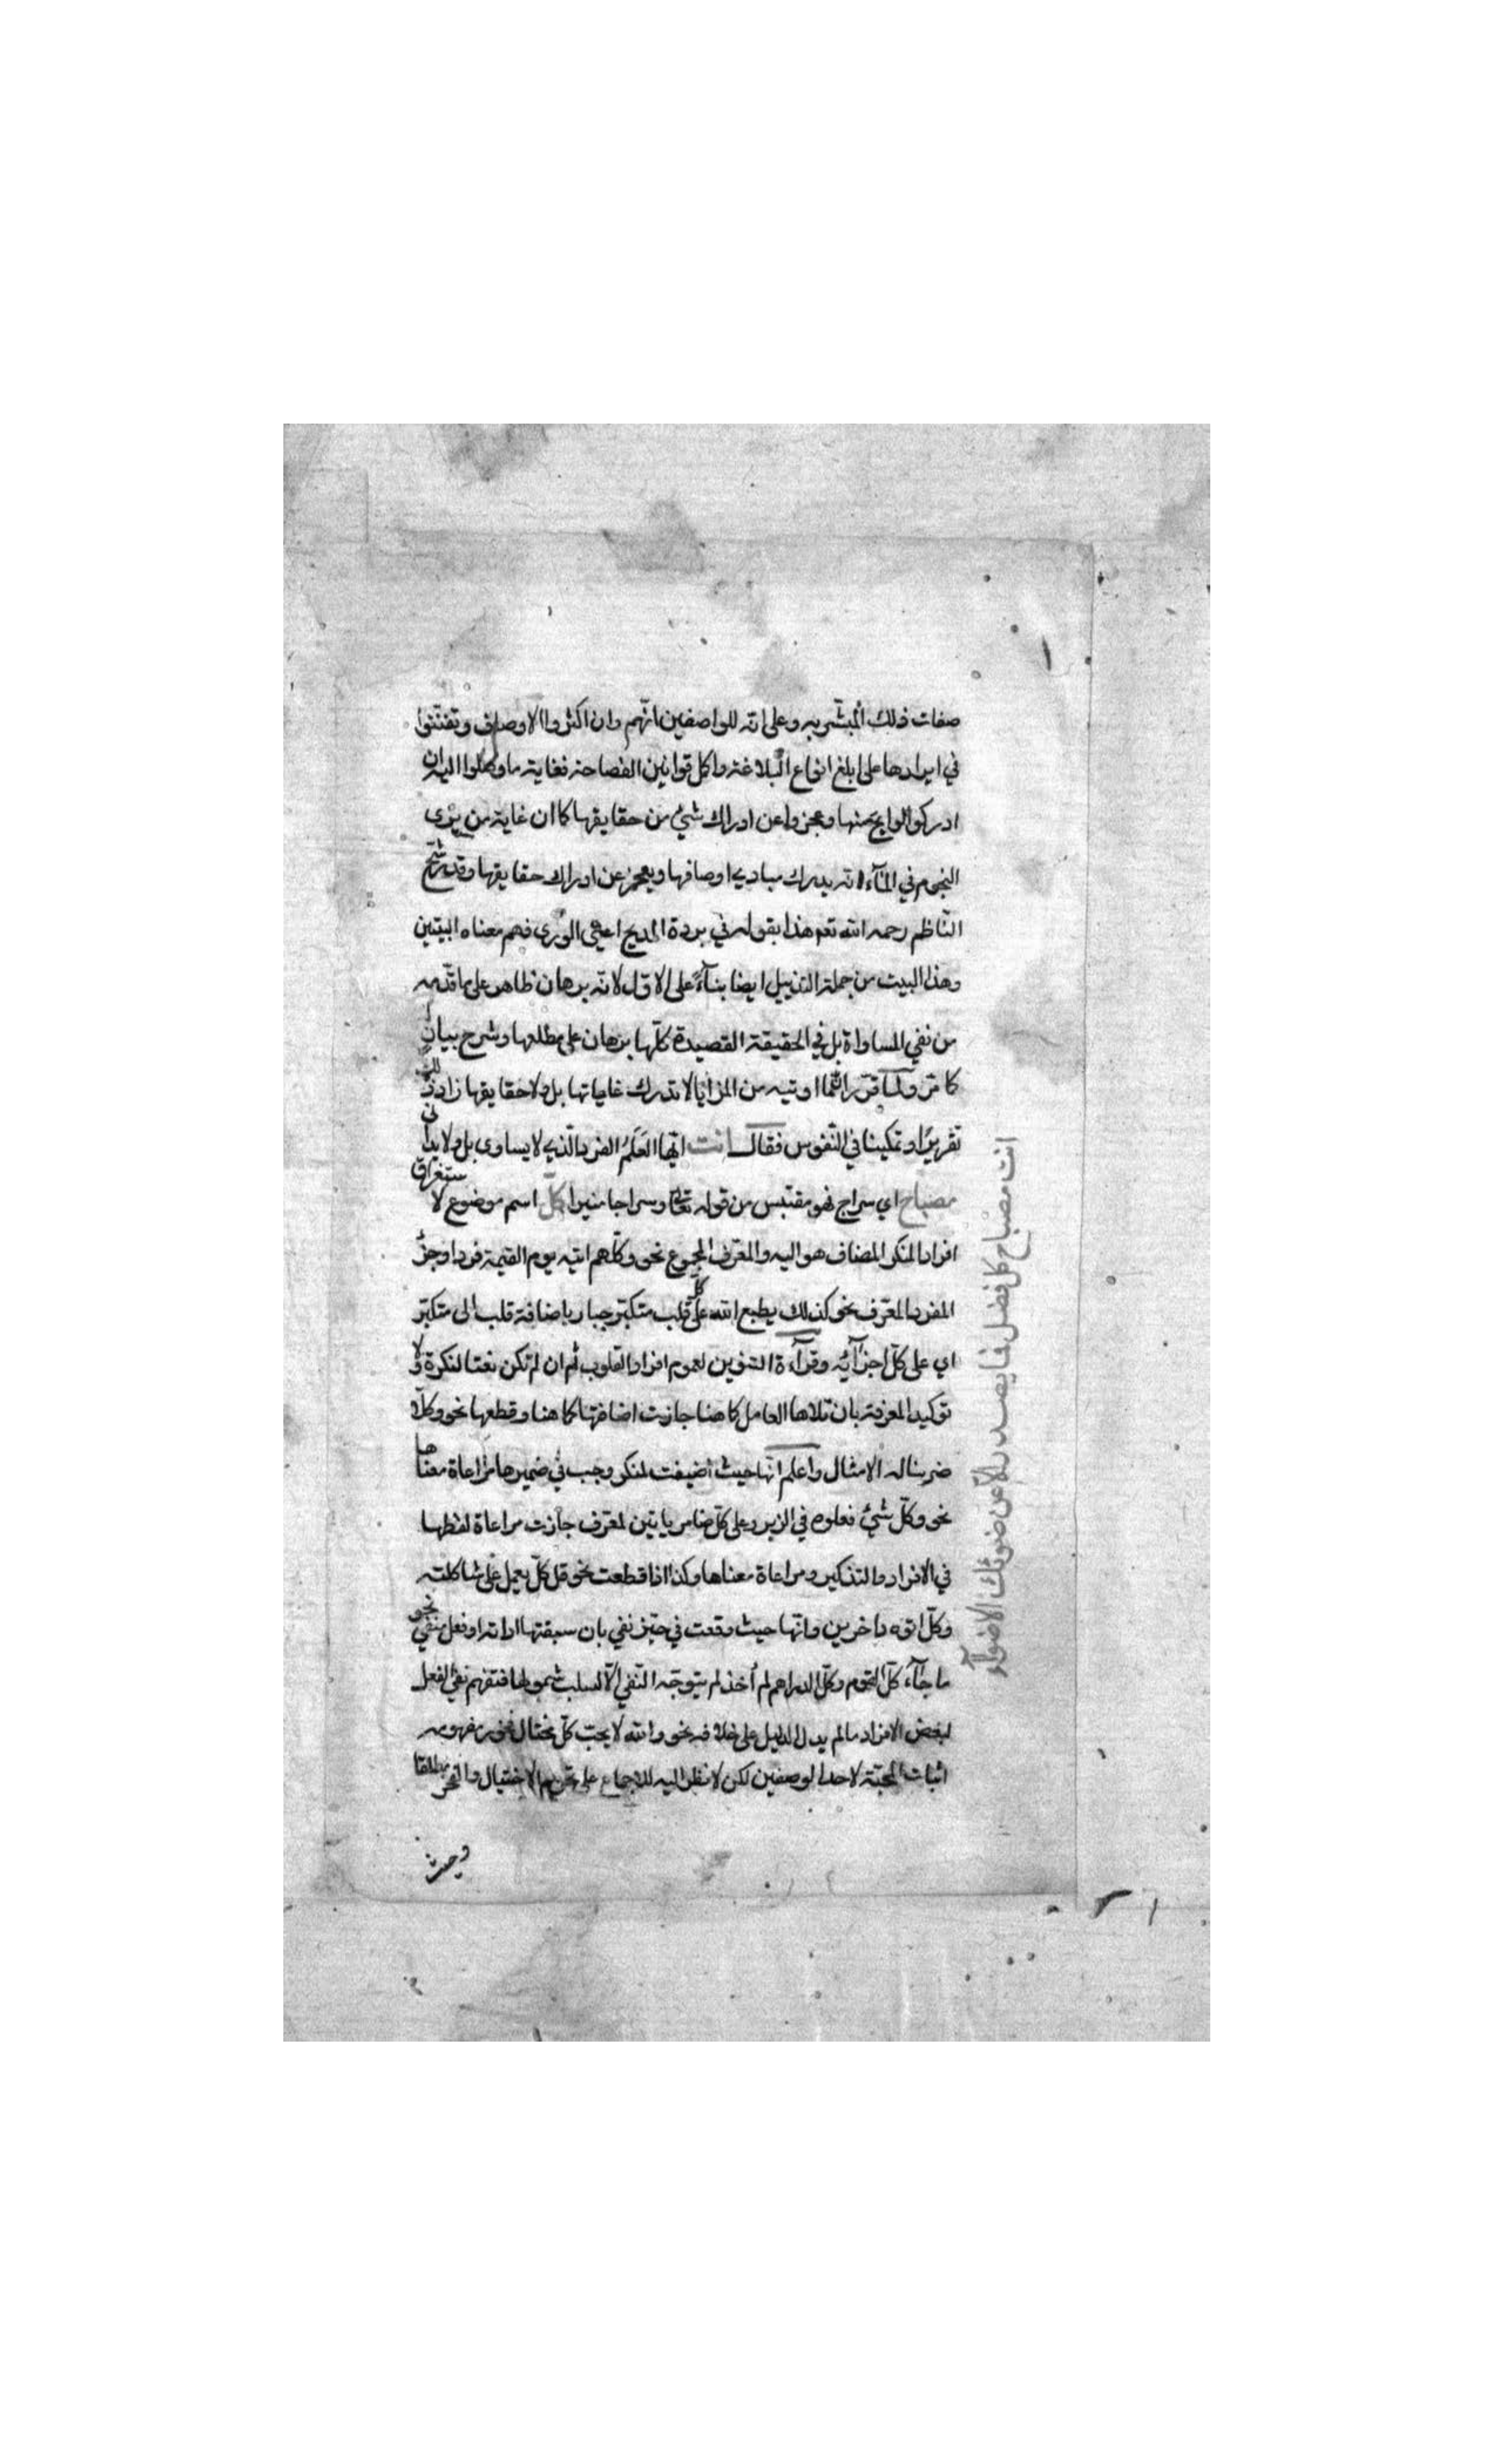 صفات ذلك المبشر به وعلى انه للواصفين انهم وان اكثروا الاوصاف وتفننوا
في ايرادها على ابلغ انواع البلاغة واكمل قوانين الفصاحة فغاية ما وصلوا اليه ان
ادركوا لوايح منها وعجزوا عن ادراك شيء من حقايقها كما ان غاية من يرى
النجوم في الماء انه يدرك مبادي اوصافها ويعجز عن ادراك حقايقها وقد شرح
الناظم رحمه الله تعم هذا بقوله في بردة المديح اعيى الورى فهم معناه البيتين
وهذا البيت من جملة التذييل ايضا بناء على الاول لانه برهان ظاهر على ما قدمه
من نفي المساواة بل في الحقيقة القصيدة كلها برهان على مطلعها وشرح بيان
كما مر ولما قرر ان ما اوتيه من المزايا لا تدرك غاياتها بل ولا حقايقها زاد ذلك
تقريرا وتمكينا في النفوس فقال انت ايها العلم الفرد الذي لا يساوى بل ولا يدانى
مصباح اي سراج فهو مقتبس من قوله تعالى وسراجا منيرا كل اسم موضوع لاستغراق
افراد المنكر المضاف هو اليه والمعرف المجموع نحو وكلهم اتيه يوم القيمة فردا وجزء
المفرد المعرف نحو كذلك يطبع الله على كل قلب متكبر جبار باضافة قلب الى متكبر
اي على كل اجزائه وقراءة التنوين لعموم افراد القلوب ثم ان لم تكن نعتا لنكرة ولا
توكيد المعرفة بان تلاها العامل كما هنا جازت اضافتها كما هنا وقطعها نحو وكلا
ضربنا له الامثال واعلم انها حيث اضيفت لمنكر وجب في ضميرها مراعاة معناها
نحو وكل شيء فعلوه في الزبر وعلى كل ضامر ياتين لمعرف جازت مراعاة لفظها
في الافراد والتذكير ومراعاة معناها وكذا اذا قطعت نحو قل كل يعمل على شاكلته
وكل اتوه داخرين وانها حيث وقعت في حيز نفي بان سبقتها اداته او فعل منفي نحو
ما جاء كل القوم وكل الدراهم لم أخذ لم يتوجه النفي الا لسلب شمولها فتفهم نفي الفعل
لبعض الافراد ما لم يدل الدليل على خلافه نحو والله لا يحب كل مختال فخور مفهومه
اثبات المحبة لاحد الوصفين لكن لا نظر اليه للاجماع على تحريم الاختيال والفخر مطلقا
وحيث
انت مصباح كل فضل فما يصدر الا عن ضوئك الاضواء